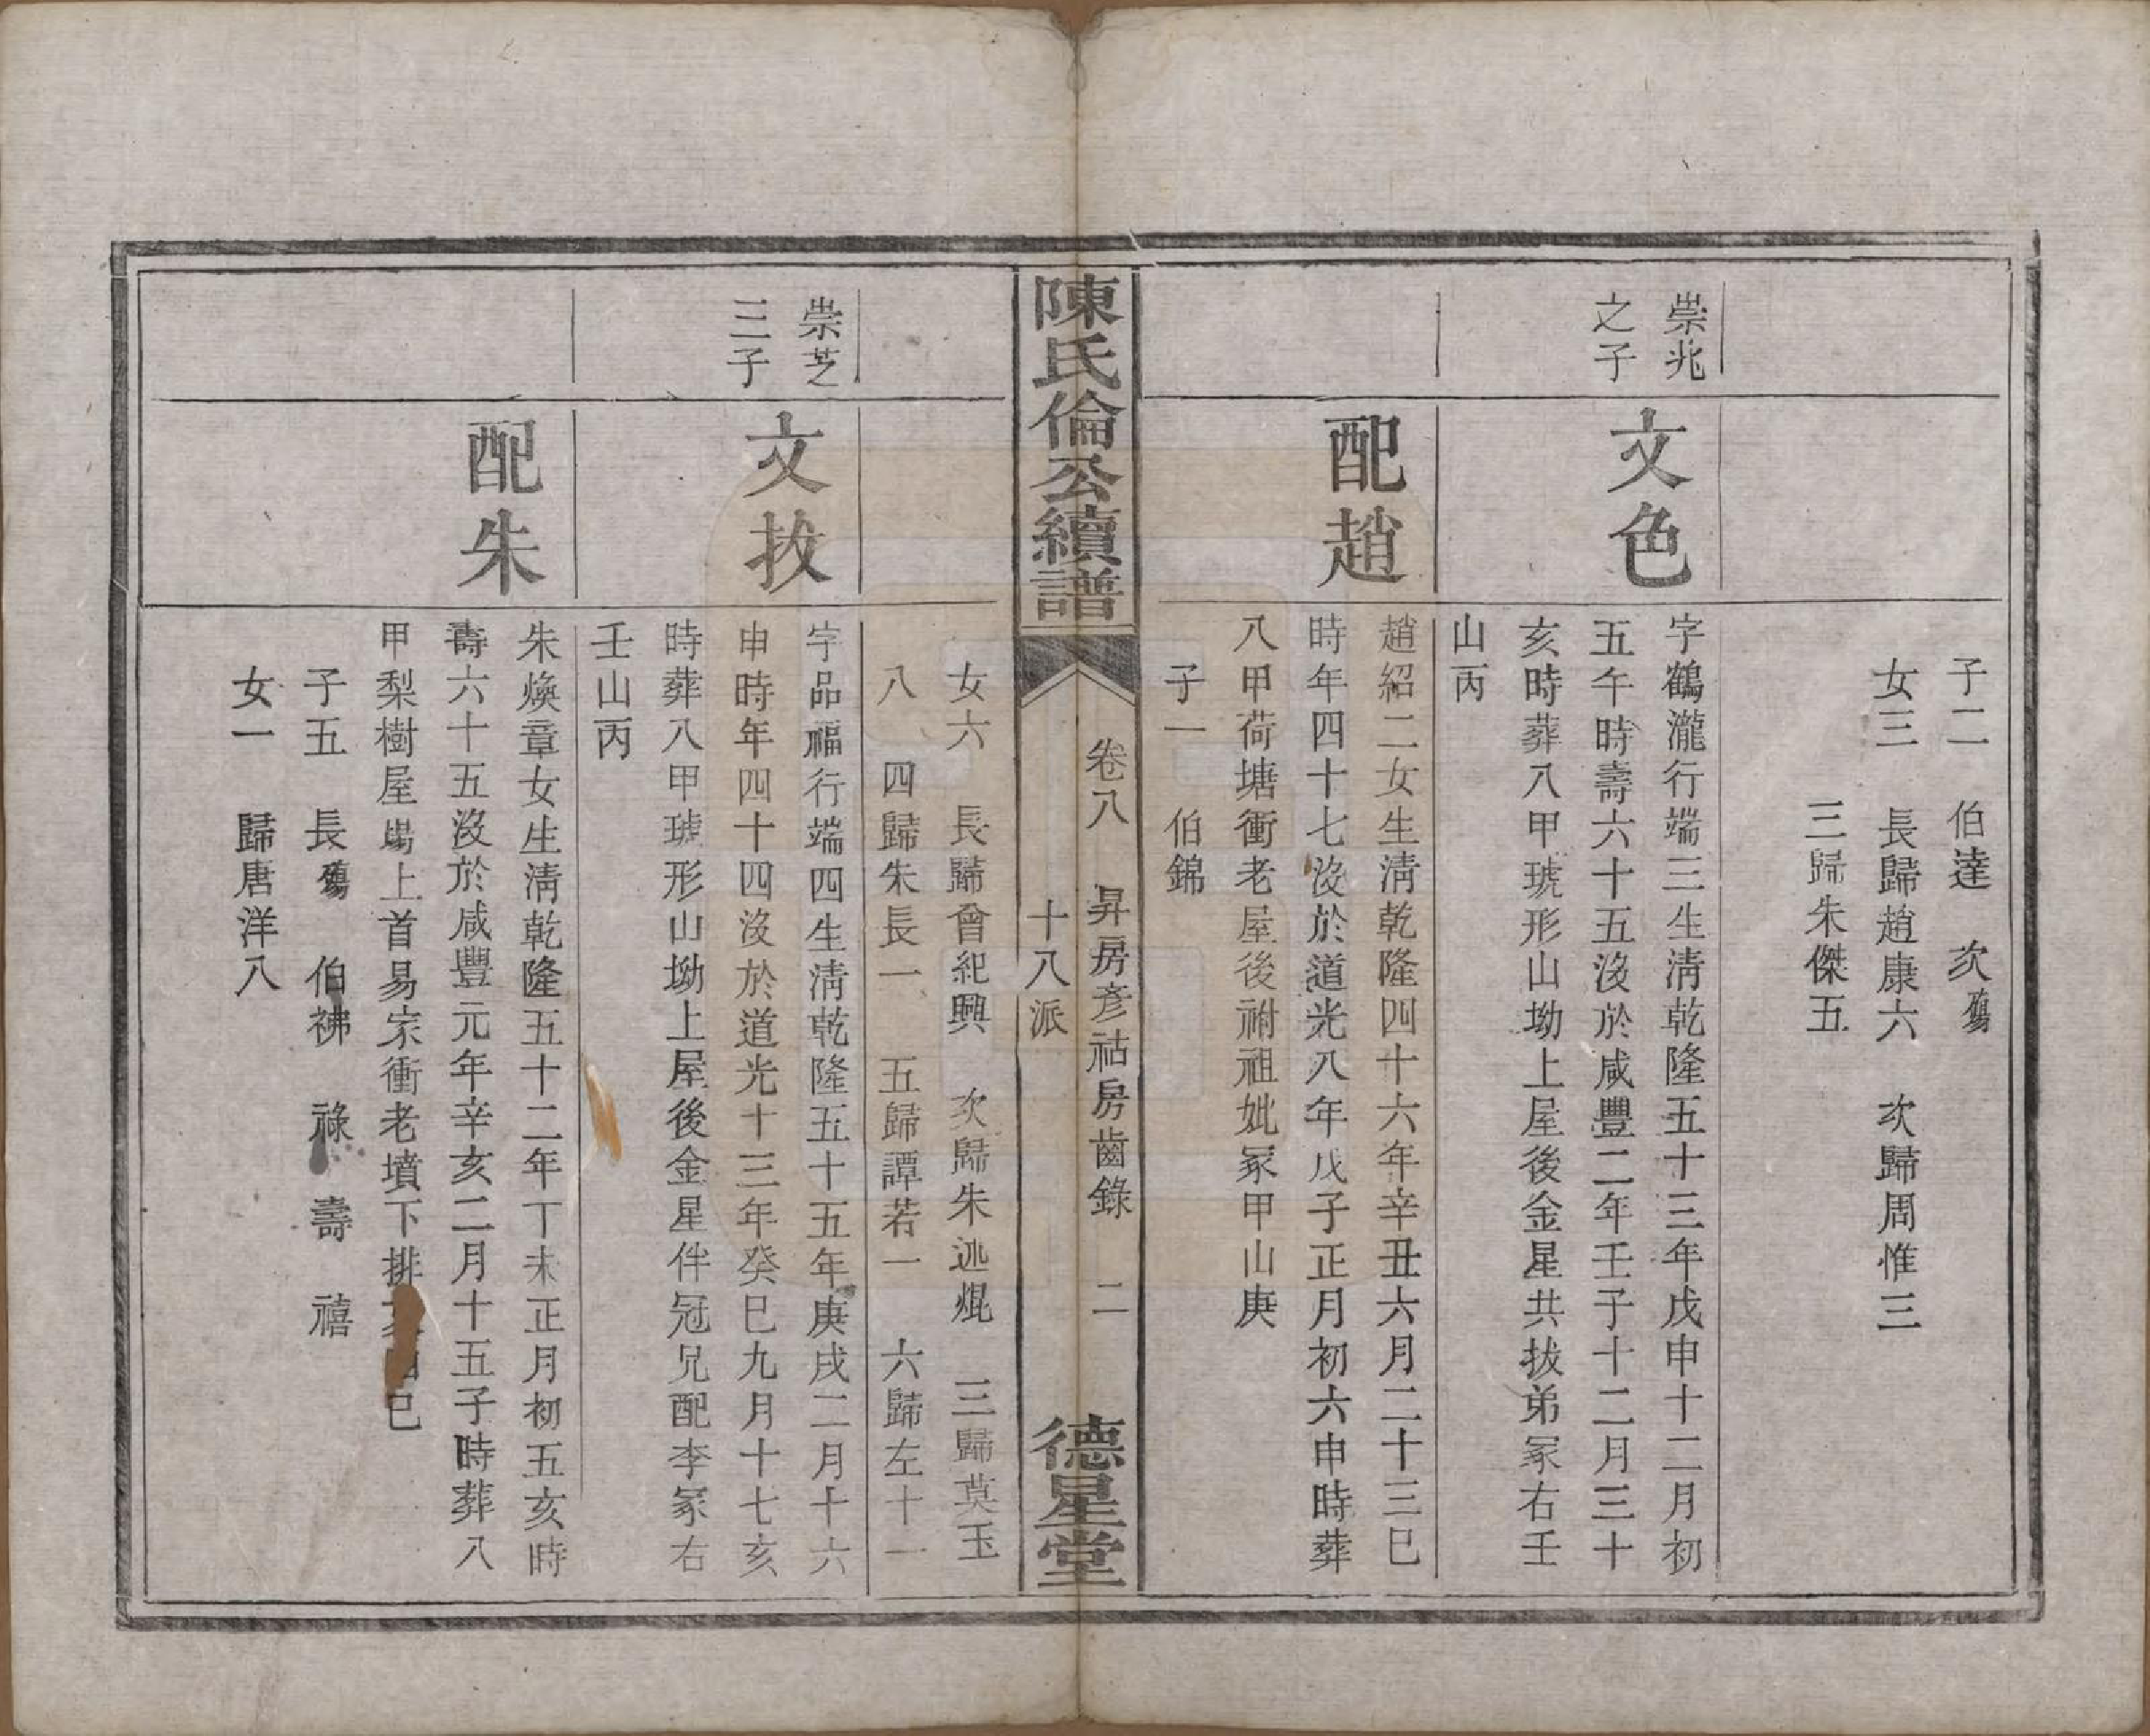 子二　伯達　次殤
女三　長歸趙康六　次歸周惟三
三歸朱傑五
崇兆
之子
文色
字鶴瀧行端三生淸乾隆五十三年戊申十二月初
五午時壽六十五沒於咸豐二年壬子十二月三十
亥時葬八甲琥形山坳上屋後金星共拔弟冢右壬
山丙
配趙
趙紹二女生淸乾隆四十六年辛丑六月二十三巳
時年四十七沒於道光八年戊子正月初六申時葬
八甲荷塘衝老屋後祔祖妣冢甲山庚
子一　伯錦
陳氏倫公續譜
卷八　昇房彥祜房齒錄　二
十八派
德星堂
女六　長歸曾紀興　次歸朱逃焜　三歸莫玉
八　四歸朱長一　五歸譚若一　六歸左十一
崇芝
三子
文拔
字品福行端四生淸乾隆五十五年庚戌二月十六
申時年四十四沒於道光十三年癸巳九月十七亥
時葬八甲琥形山坳上屋後金星伴冠兄配李冢右
壬山丙
配朱
朱煥章女生淸乾隆五十二年丁未正月初五亥時
壽六十五沒於咸豐元年辛亥二月十五子時葬八
甲梨樹屋塲上首易家衝老墳下排巳
子五　長殤　伯祓　祿　壽　禧
女一　歸唐洋八